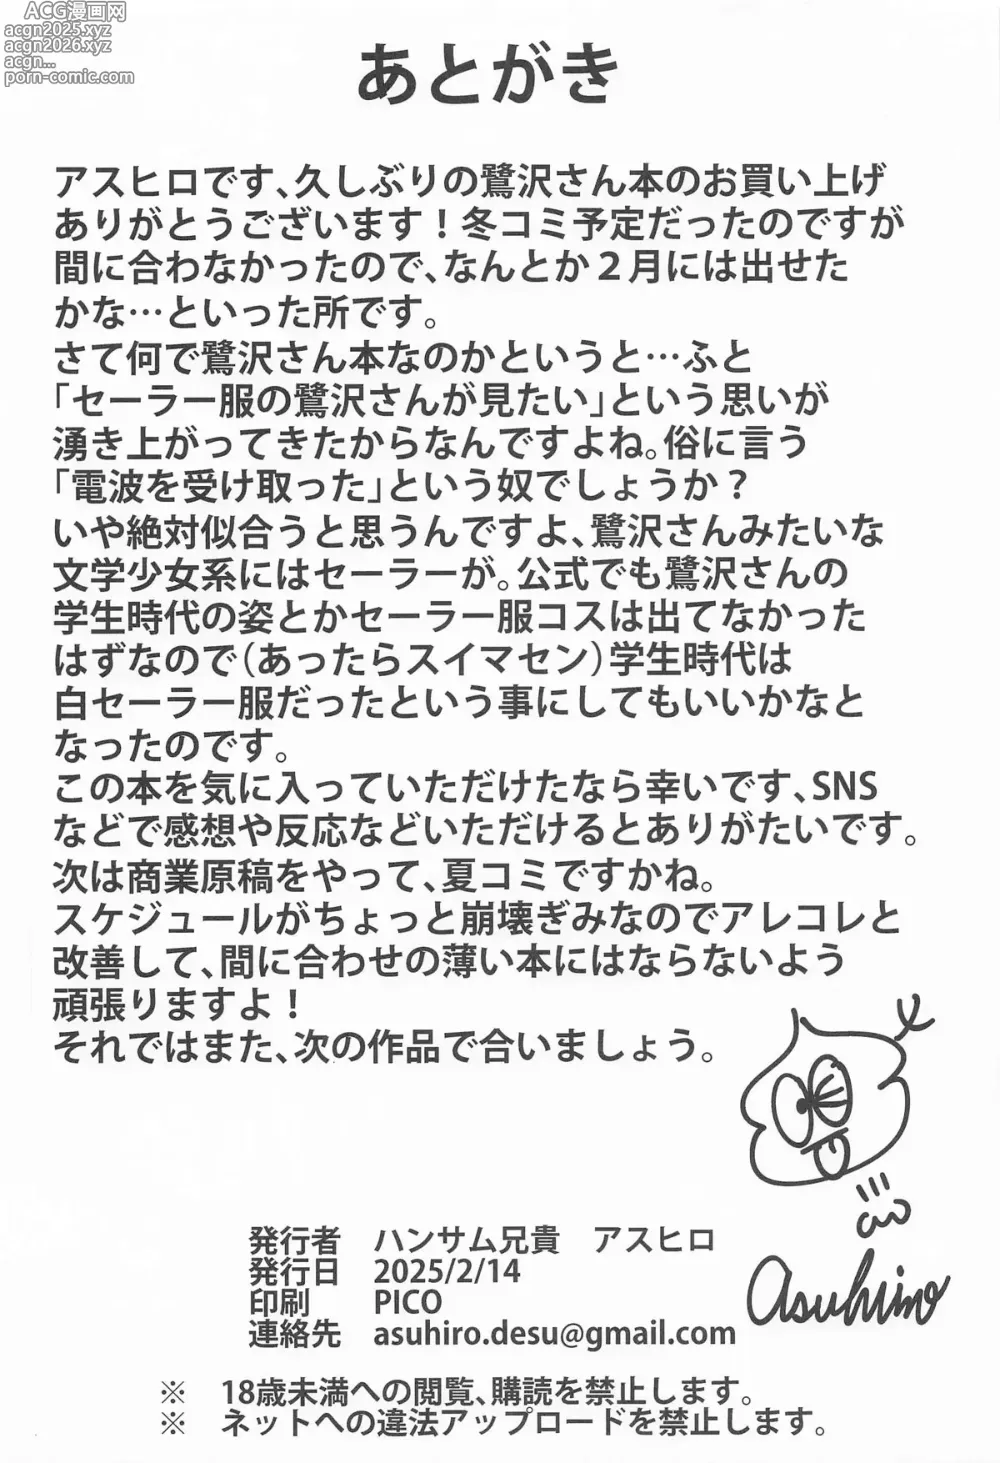 ACG漫画网
acgn2025.xyz
acgn2026.xyz
acgn...
porn-comic.com
あとがき
アスヒロです、久しぶりの鷺沢さん本のお買い上げ
ありがとうございます！冬コミ予定だったのですが
間に合わなかったので、なんとか２月には出せた
かな…といった所です。
さて何で鷺沢さん本なのかというと…ふと
「セーラー服の鷺沢さんが見たい」という思いが
湧き上がってきたからなんですよね。俗に言う
「電波を受け取った」という奴でしょうか？
いや絶対似合うと思うんですよ、鷺沢さんみたいな
文学少女系にはセーラーが。公式でも鷺沢さんの
学生時代の姿とかセーラー服コスは出てなかった
はずなので（あったらスイマセン）学生時代は
白セーラー服だったという事にしてもいいかなと
なったのです。
この本を気に入っていただけたなら幸いです、SNS
などで感想や反応などいただけるとありがたいです。
次は商業原稿をやって、夏コミですかね。
スケジュールがちょっと崩壊ぎみなのでアレコレと
改善して、間に合わせの薄い本にはならないよう
頑張りますよ！
それではまた、次の作品で合いましょう。
発行者　ハンサム兄貴　アスヒロ
発行日　2025/2/14
印刷　PICO
連絡先　asuhiro.desu@gmail.com
Asuhiro
※　18歳未満への閲覧、購読を禁止します。
※　ネットへの違法アップロードを禁止します。